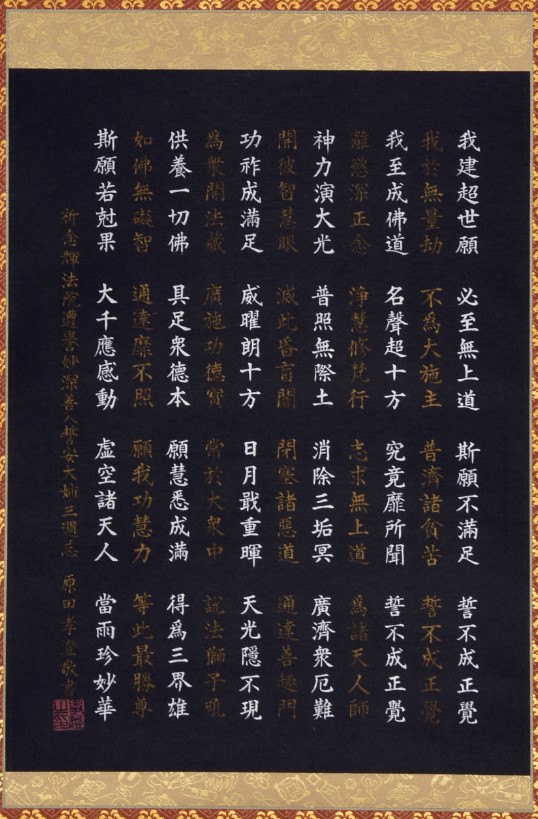 我建超世願 必至無上道 斯願不滿足 誓不成正覺
我於無量劫 不為大施主 普濟諸貧苦 誓不成正覺
我至成佛道 名聲超十方 究竟靡所聞 誓不成正覺
離慾深正念 淨慧修梵行 志求無上道 為諸天人師
神力演大光 普照無際土 消除三垢冥 廣濟衆厄難
開彼智慧眼 滅此昏盲闇 閉塞諸惡道 通達善趣門
功祚成滿足 威曜朗十方 日月戢重暉 天光隱不現
為衆開法藏 廣施功德寶 常於大衆中 説法獅子吼
供養一切佛 具足衆德本 願慧悉成滿 得為三界雄
如佛無礙智 通達靡不照 願我功慧力 等此最勝尊
斯願若尅果 大千應感動 虛空諸天人 當雨珍妙華
祈念輝法院遭譽妙深善人誓安大姉三週忌 原田孝 敬書